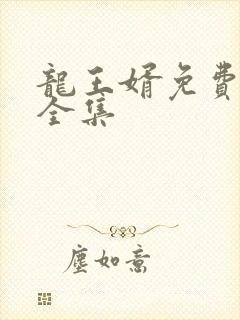 龍王婿免費
全集
塵如意